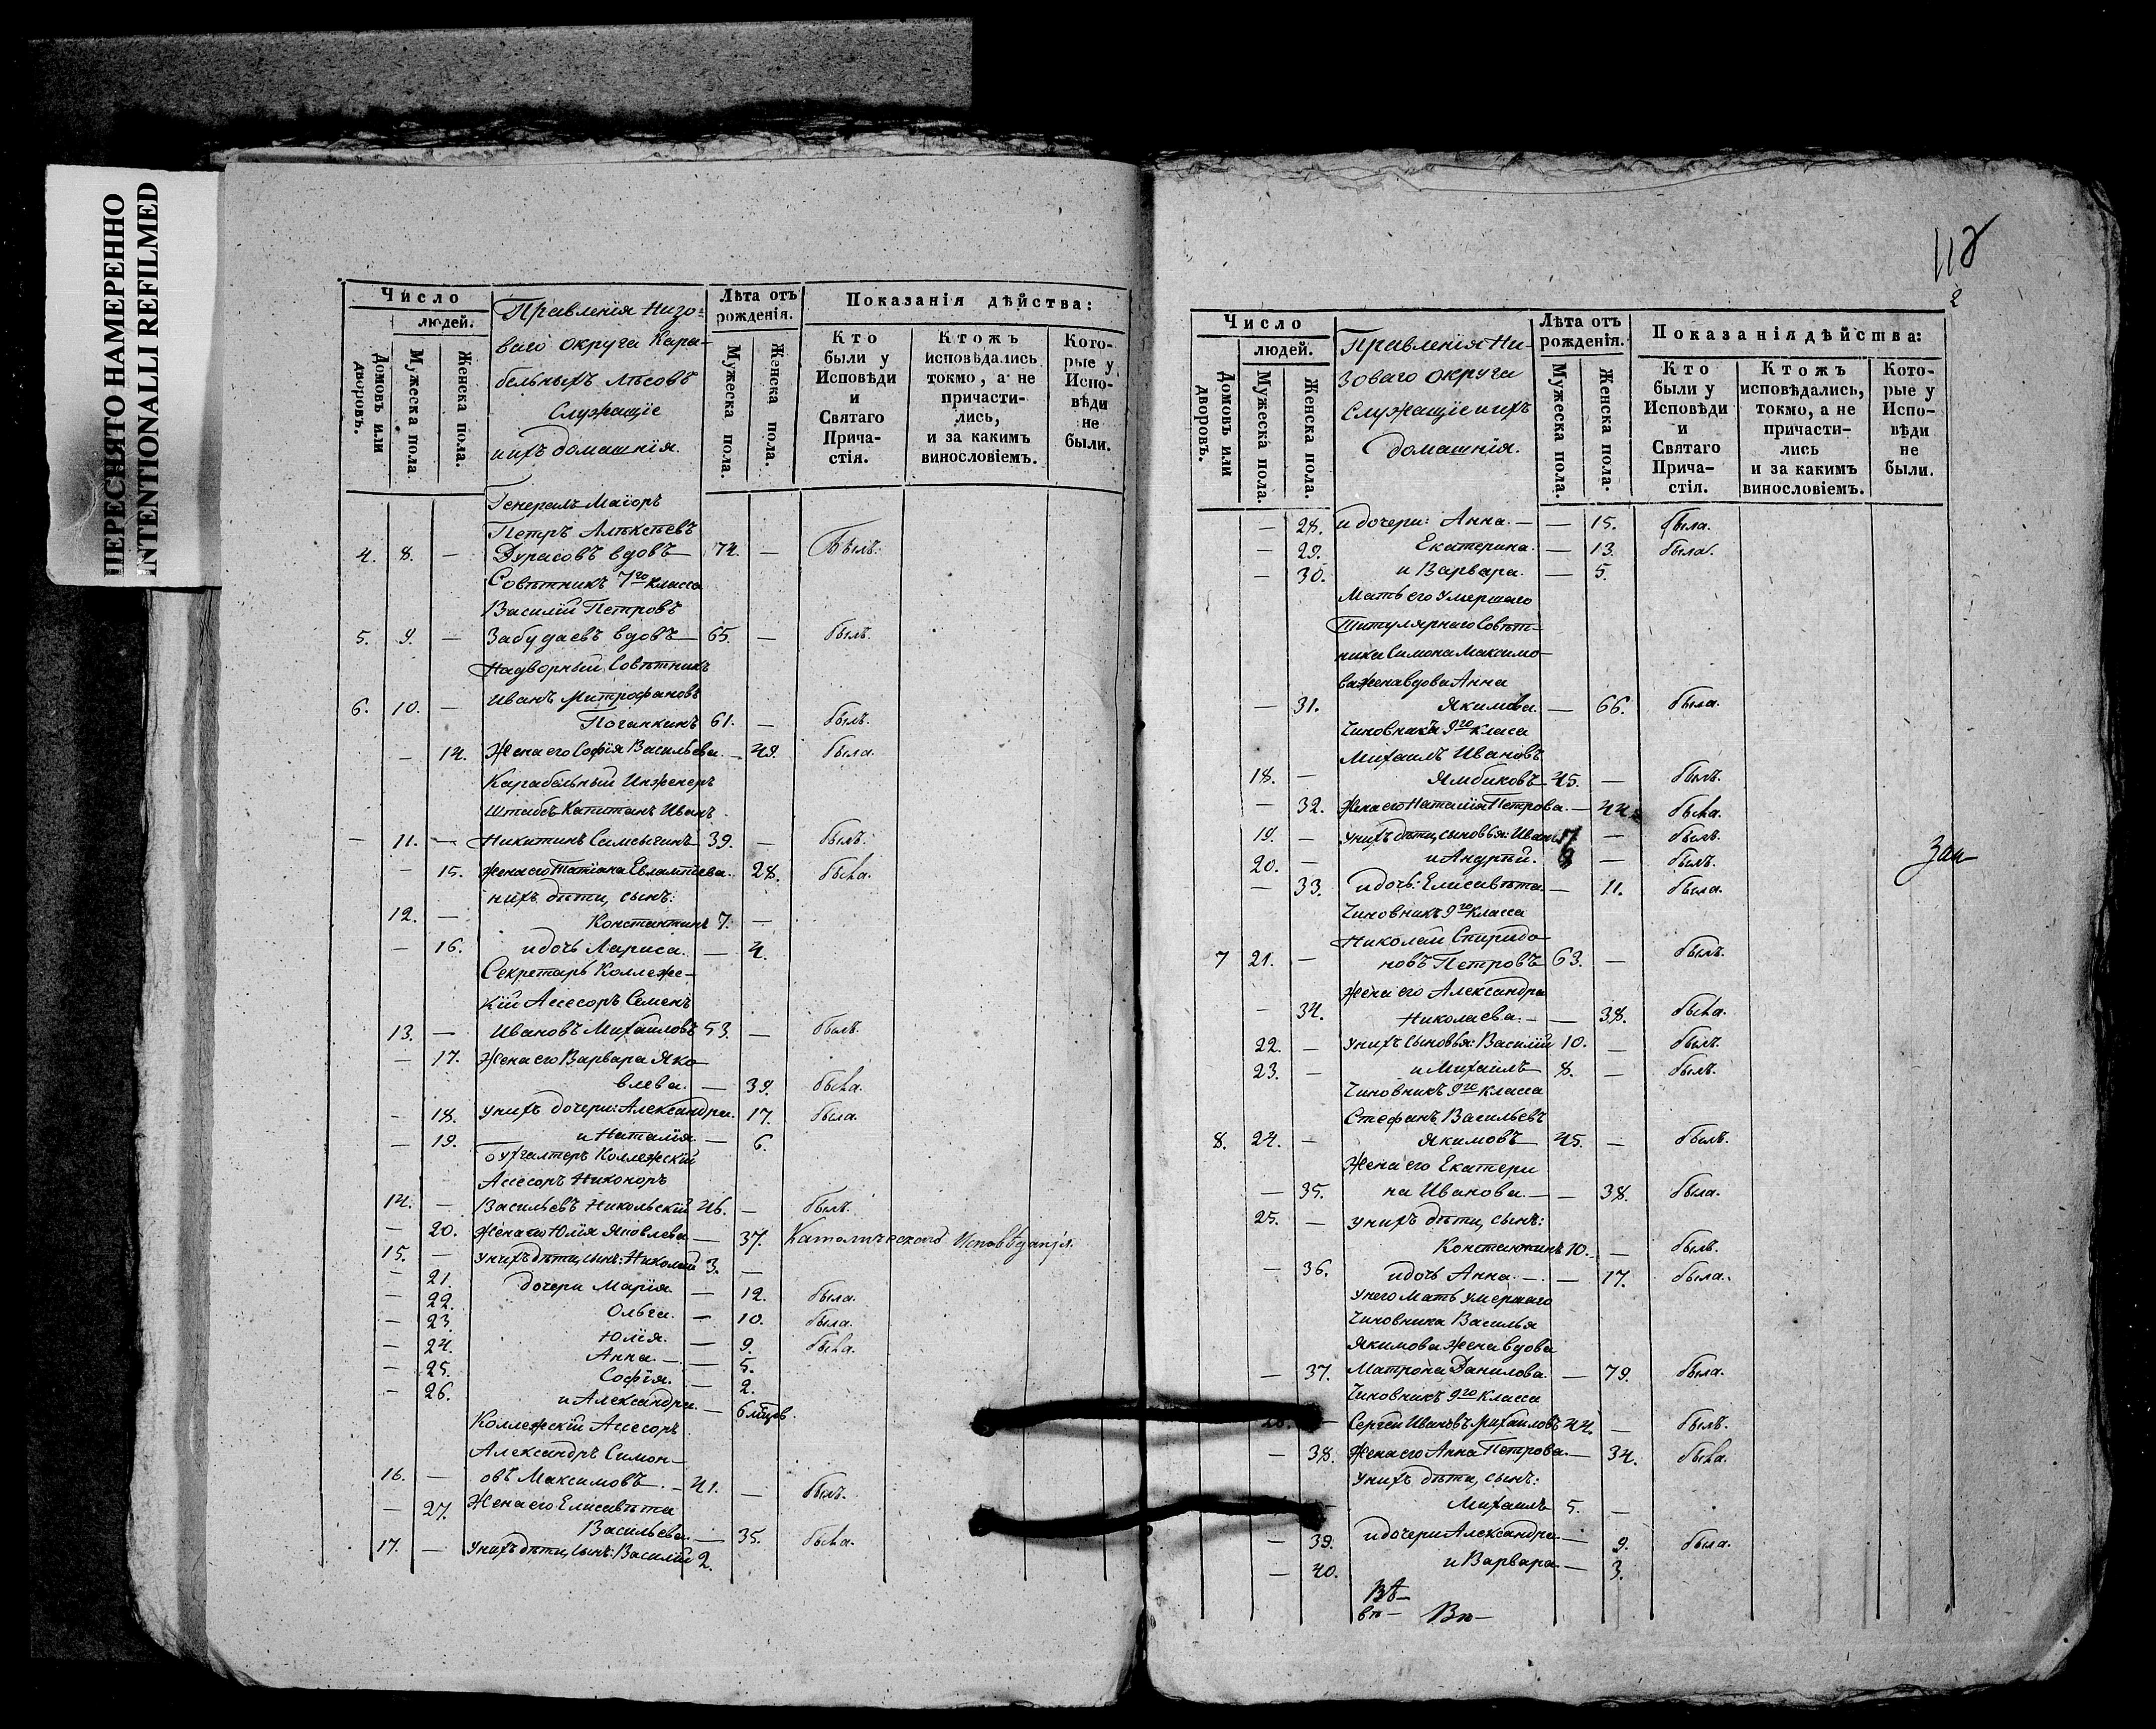 ПЕРЕСНЯТО НАМЕРЕННО
INTENTIONALLI REFILMED
Число
людей.
Домовъ или дворовъ.
Мужеска пола
Женска пола.
Правленія Низо-
ваго округа Кара-
бельныхъ лѣсовъ
Служащіе
ихъ домашнія.
Лѣта отъ рожденія.
Мужеска пола.
Женска пола.
Показанія дѣйства:
Кто были у Исповѣди и Святаго Прича-стія.
Ктожъ исповѣдались токмо, а не причасти-лись, и за какимъ винословіемъ.
Кото-рые у Испо-вѣди не были.
Генералъ Маіоръ
Петръ Алѣксѣевъ
4. 8. — Дурасовъ вдовъ — 74. — Былъ.
Совѣтникъ 7го класса
Василій Петровъ
5. 9. — Забудаевъ вдовъ — 65. — былъ.
Надворный Совѣтникъ
6. 10. — Иванъ Митрофановъ
Поганкинъ 61. — былъ.
— 14. Жена его Софія Васильева. — 49. была.
Карабельный Инженеръ
Штабсъ Капитанъ Иванъ
— 11. — Никитинъ Самсыгинъ 39. — былъ.
— 15. Жена его Татіана Евлампіева. 28. была.
нихъ дѣти, сынъ:
12. — Константинъ 7. —
— 16. и дочь Лариса. — 4.
Секретарь Коллеже-
кій Ассесоръ Семенъ
13. — Ивановъ Михаиловъ 53. — былъ.
— 17. Жена его Варвара Яко
влева. — 39. была.
— 18. у нихъ дочери: Александра. 17. была.
— 19. и Наталія. — 6.
бухгалтеръ Коллежскій
Ассесоръ Никоноръ
14. — Васильевъ Никольскій 46. — былъ.
— 20. Жена его Юлія Яковлева — 37. Католическаго Исповѣданія.
15. — у нихъ дѣти, сынъ: Николай 3. —
— 21. дочери Марія. — 12. была.
— 22. Ольга. — 10. была.
— 23. Юлія. — 9. была.
— 24. Анна. — 5.
— 25. Софія. — 2.
— 26. и Александра. — 6 мцов.
Коллежскій Ассесоръ
Александръ Симон-
16. — овъ Максимовъ. — 41. — былъ.
— 27. Жена его Елисавѣта
Васильева. — 35. была.
17. — у нихъ дѣти, сынъ: Василій 2.
118
2
Число
людей.
Домовъ или дворовъ.
Мужеска пола.
Женска пола.
Правленія Ни-
зоваго округа
Служащіе ихъ
домашнія.
Лѣта отъ рожденія.
Мужеска пола.
Женска пола.
Показанія дѣйства:
Кто были у Исповѣди и Святаго Прича-стія.
Ктожъ исповѣдались, токмо, а не причасти-лись и за какимъ винословіемъ.
Кото-рые у Испо-вѣди не были.
— 28. и дочери: Анна. — — 15. была.
— 29. Екатерина. — 13. была.
— 30. и Варвара. — 5.
Мать его умершаго
Титулярнаго Совѣт-
ника Симона Максимо-
ва жена вдова Анна
— 31. Якимова. — 66. была.
Чиновникъ 9го класа
Михаилъ Ивановъ
18. — Ямбиковъ 45. — былъ.
— 32. Жена его Наталія Петрова. — 44. была.
19. — у нихъ дѣти, сыновья: Иванъ 17 — былъ.
20. — и Андрей. — былъ.
— 33. и дочь: Елисавѣта — 11. была.
Чиновникъ 9го класса
Николай Спиридо
7 21. — новъ Петровъ 63. — былъ.
Жена его Александра
— 34. Николаева. — 38. была.
22. — у нихъ сыновья: Василій 10. — былъ.
23. — и Михаилъ 8. — былъ.
Чиновникъ 9го класса
Стефанъ Васильевъ
8. 24. — Якимовъ 45. — былъ.
Жена его Екатери
— 35. на Иванова. — — 38. была.
25. — у нихъ дѣти, сынъ:
Константинъ 10. — былъ.
— 36. и дочь Анна. — — 17. была.
у него Мать умершаго
Чиновника Василья
Якимова жена вдова
— 37. Матрона Данилова. — 79. была.
Чиновникъ 9го класса
26. — Сергѣй Ивановъ Михаиловъ 44. — былъ.
— 38. Жена его Анна Петрова. — 34. была.
у нихъ дѣти, сынъ:
— Михаилъ 5. —
— 39. и дочери Александра — 9. была.
— 40. и Варвара — 3.
Вѣ—
вѣ— Вѣ—